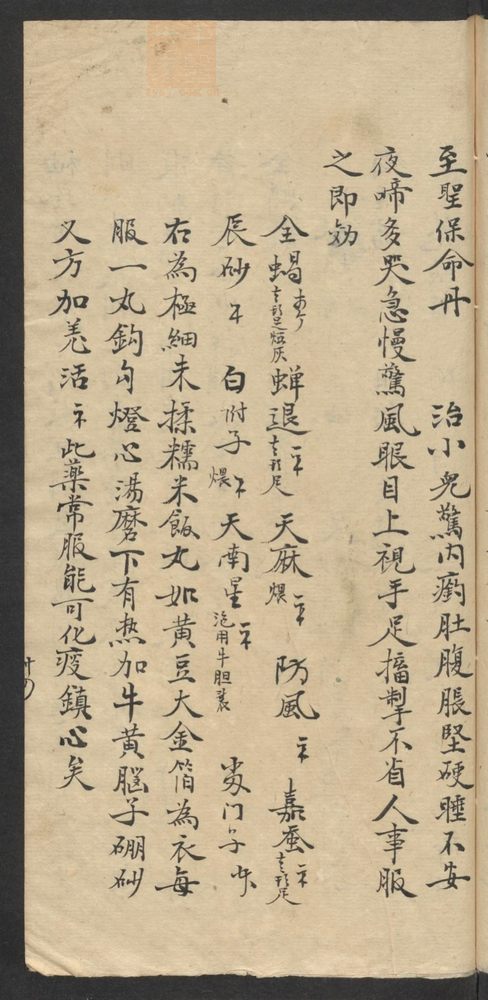 至聖保命丹 治小児驚内瘹肚腹脹堅硬睡不安
夜啼多哭急慢驚風眼目上視手足搐掣不省人事服
之即効
全蝎 蝉退 天麻煨 防風 蚕
辰砂 白附子煨 天南星 门子
右為極細末揉糯米飯丸如黄豆大金箔為衣每
服一丸鈎勾燈心湯磨下有热加牛黄腦子硼砂
又方加羌活 此藥常服能可化痰鎮心矣